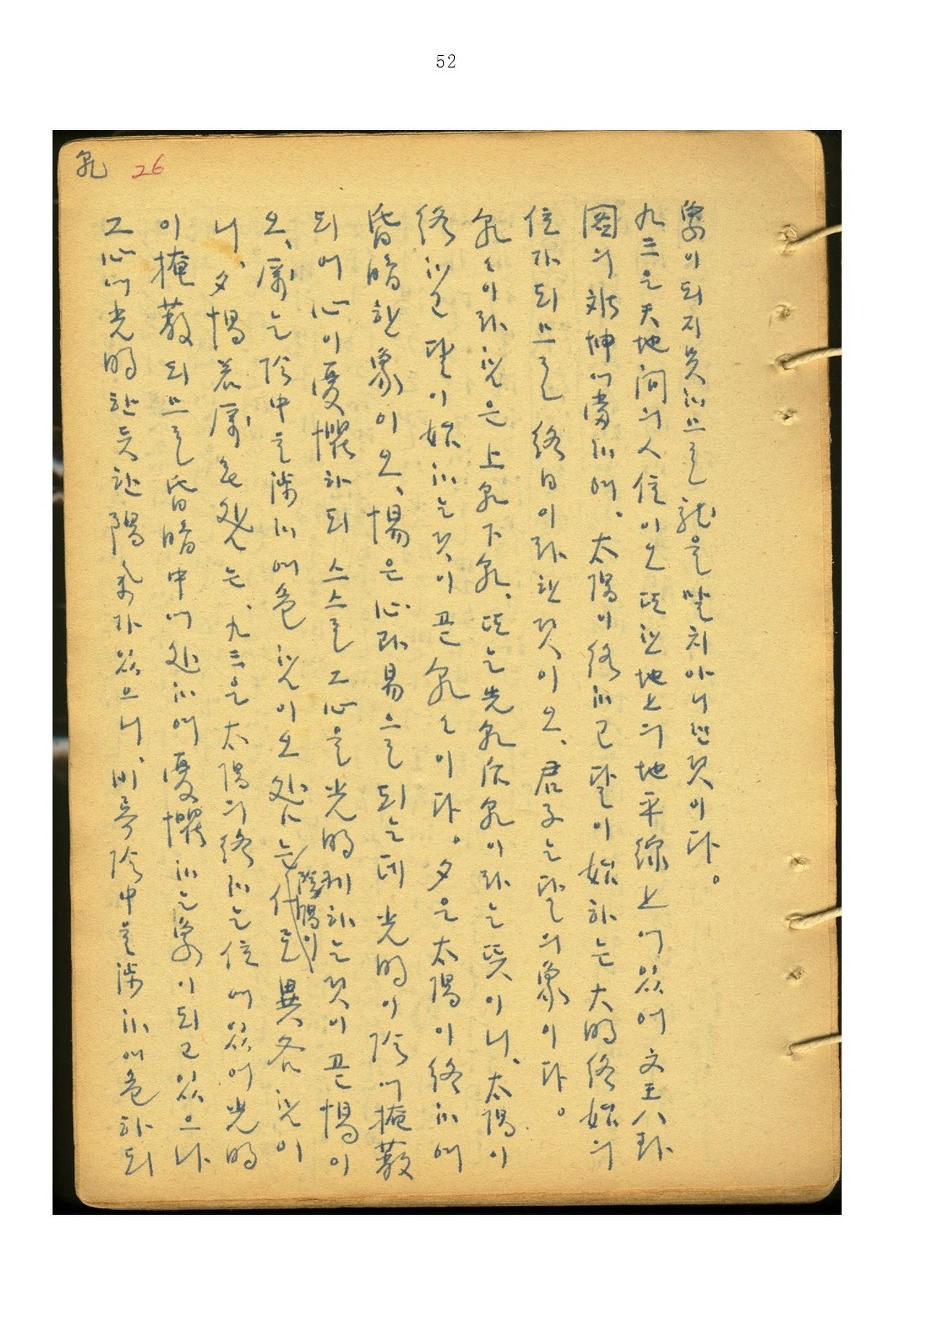 52
乾 26
象이되지못하므로 龍을말치아니한것이다。
九三은天地間의人位이오 또한地上의地平線上에있어 文王八卦
圖의 坤에當하며、太陽이終하고달이始하는大明終始의
位가되므로 終日이라한것이오、君子는달의象이다。
乾乾이라함은上乾下乾、또는先乾后乾이라는뜻이니、太陽이
終하고달이始하는것이곧乾乾이다。夕은太陽이終하며
昏暗한象이오、惕은心과易으로되는데 光明이陰에掩蔽
되어心이憂懼하되 스스로그心을光明케하는것이곧惕이
오、厲는陰中을涉하며危함이오 咎는 陰陽이 異各함이
니、夕惕若厲无咎는、九三은太陽의終하는位에있어光明
이掩蔽되므로昏暗中에処하며憂懼하는象이되고있으나
그心에光明한듯한陽氣가있으니、비록陰中을涉하며危하되